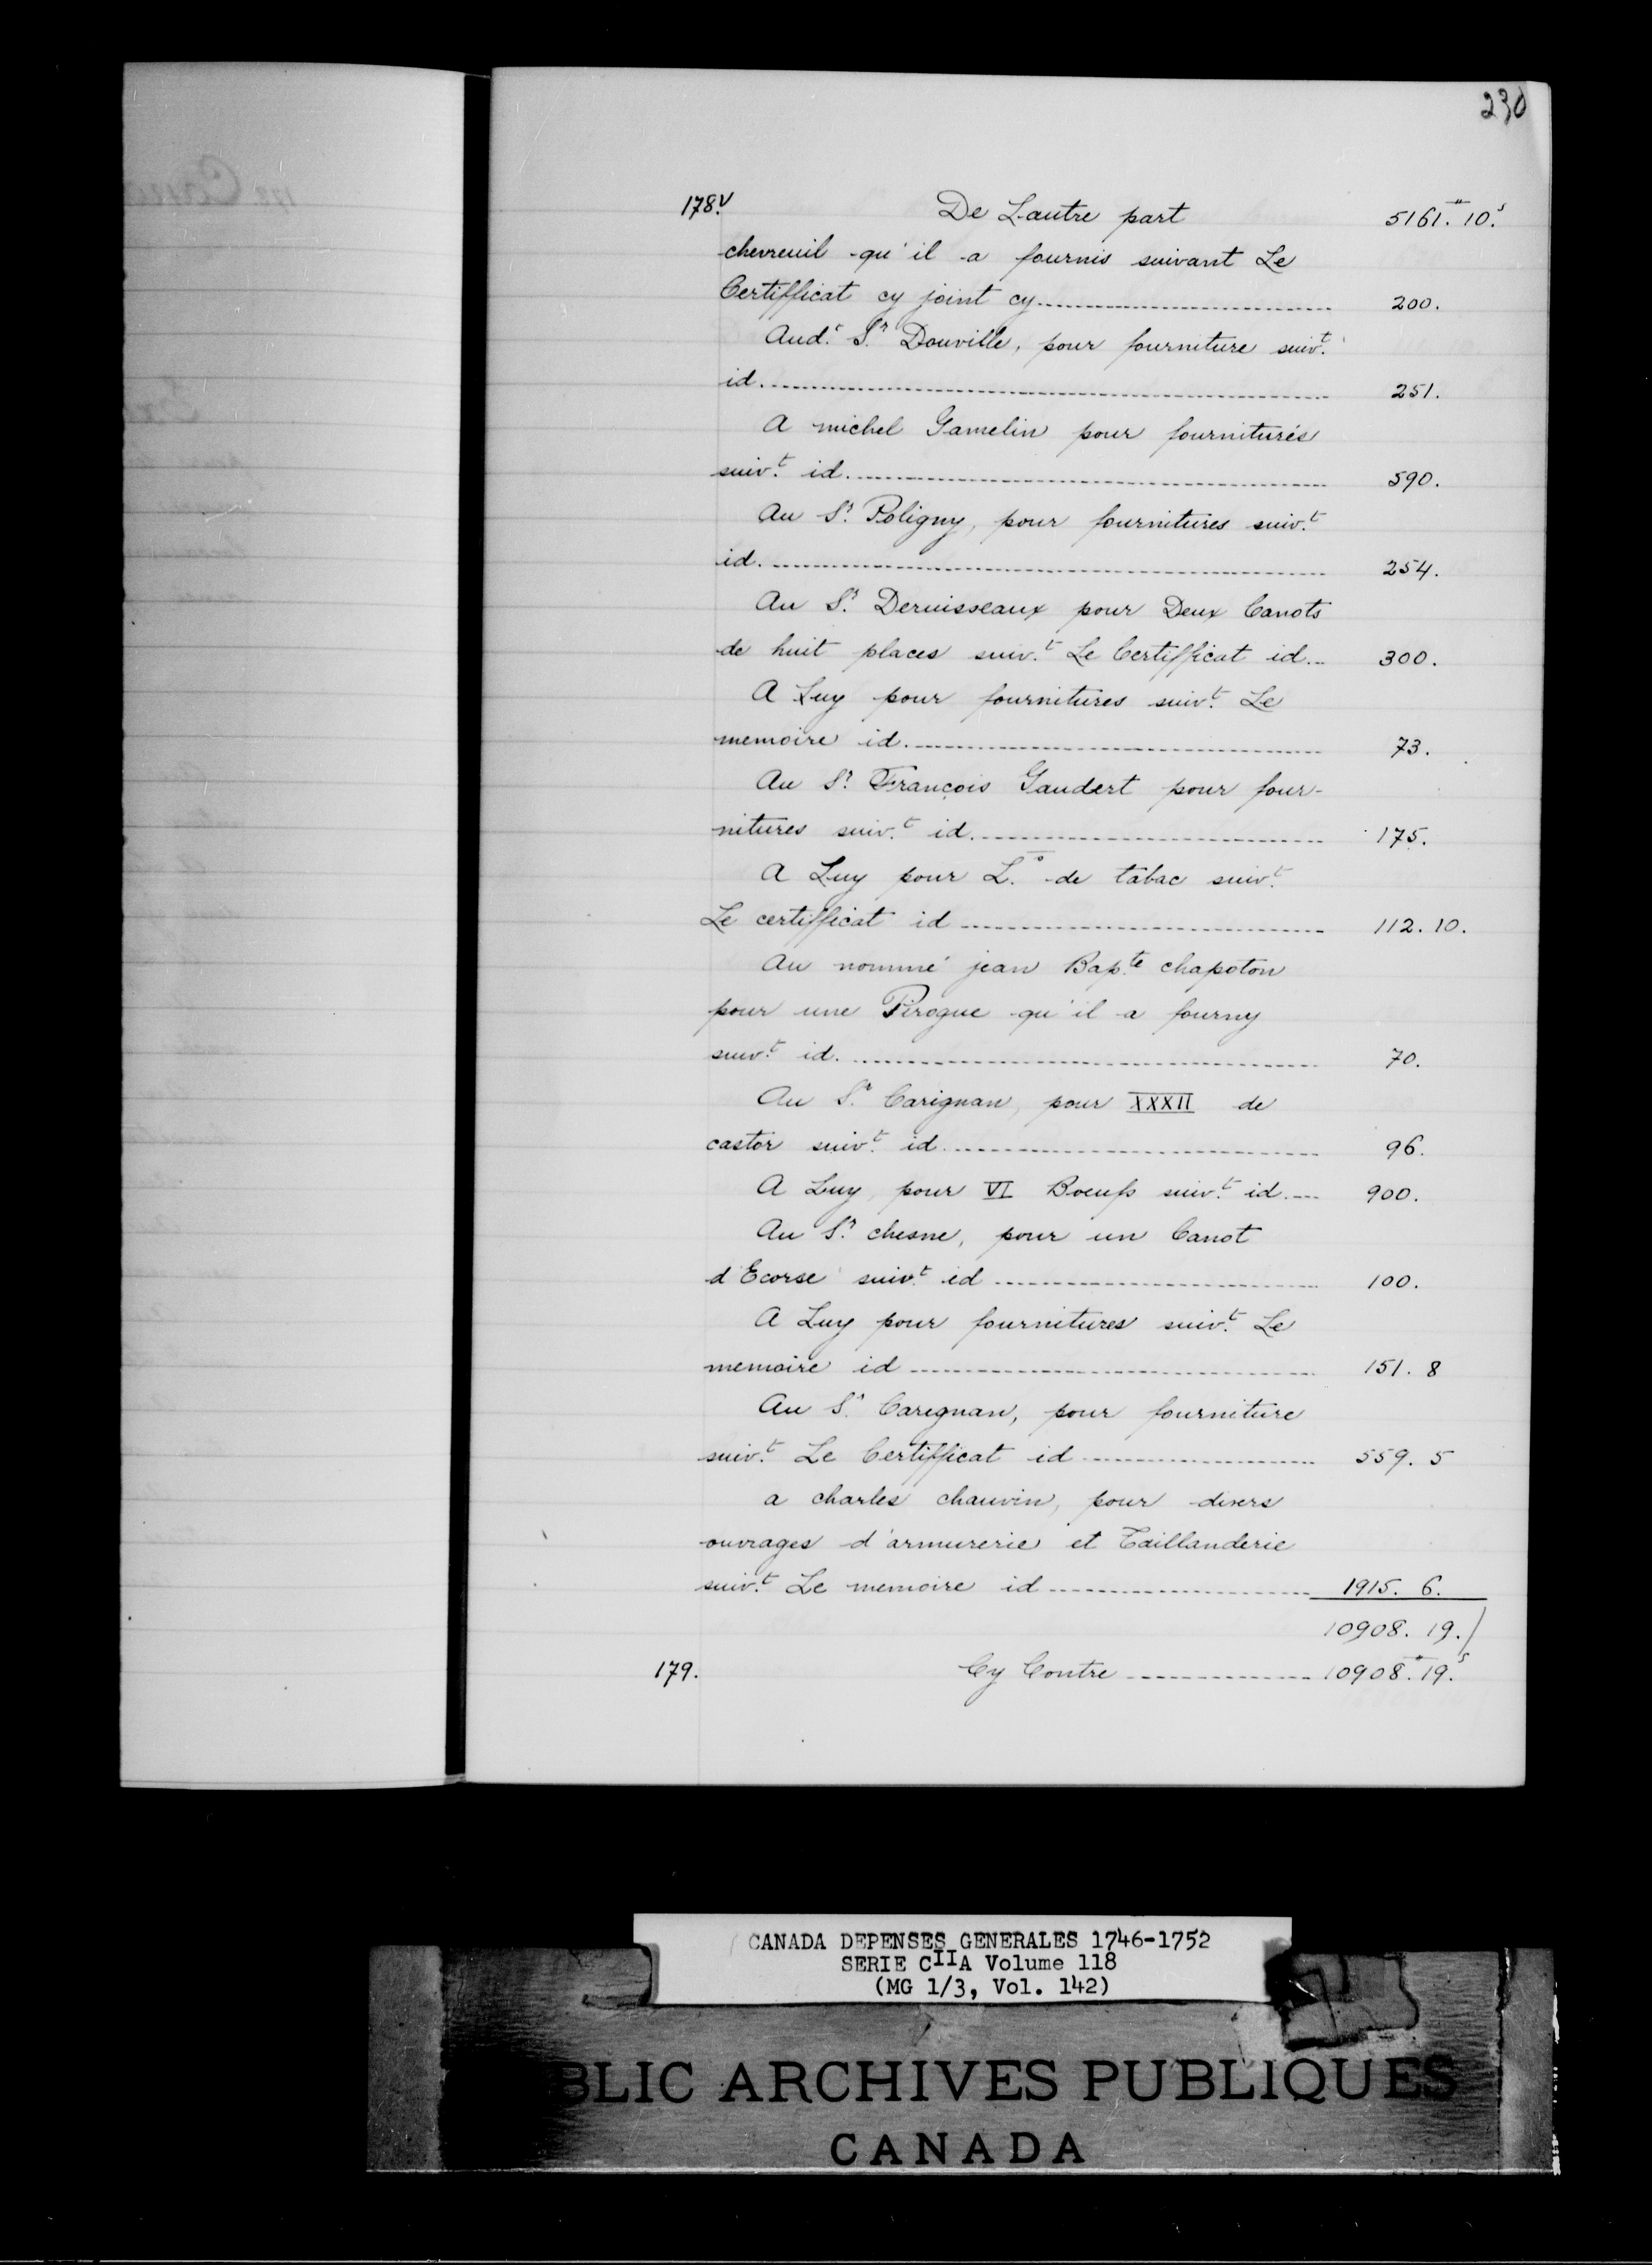 230
178.v De L'autre part 5161.# 10.s
chevreuil qu'il a fournis suivant Le
Certifficat cy joint cy 200.
Aud.t S.r Douville, pour fourniture suiv.t
id. 251.
A michel Gamelin pour fournitures
suiv.t id. 590.
Au S.r Poligny, pour fournitures suiv.t
id. 254.
Au S.r Deruisseaux pour Deux Canots
de huit places suiv.t Le Certifficat id. 300.
A Luy pour fournitures suiv.t Le
memoire id. 73.
Au S.r François Gaudert pour four-
nitures suiv.t id. 175.
A Luy pour L. de tabac suiv.t
Le certifficat id 112. 10.
Au nommé jean Bap.te chapoton
pour une Pirogue qu'il a fourny
suiv.t id. 70.
Au S.r Carignan, pour XXXII de
castor suiv.t id. 96.
A Luy, pour VI Boeufs suiv.t id. 900.
Au S.r chesne, pour un Canot
d'Ecorse suiv.t id 100.
A Luy pour fournitures suiv.t Le
memoire id 151. 8
Au S.r Carignan, pour fourniture
suiv.t Le Certifficat id 559. 5
a charles chauvin, pour divers
ouvrages d'armurerie et Taillanderie
suiv.t Le memoire id 1915. 6.
10908. 19.
179. Cy Contre 10908.# 19.s
CANADA DEPENSES GENERALES 1746-1752
SERIE CIIA Volume 118
(MG 1/3, Vol. 142)
BLIC ARCHIVES PUBLIQUES
CANADA